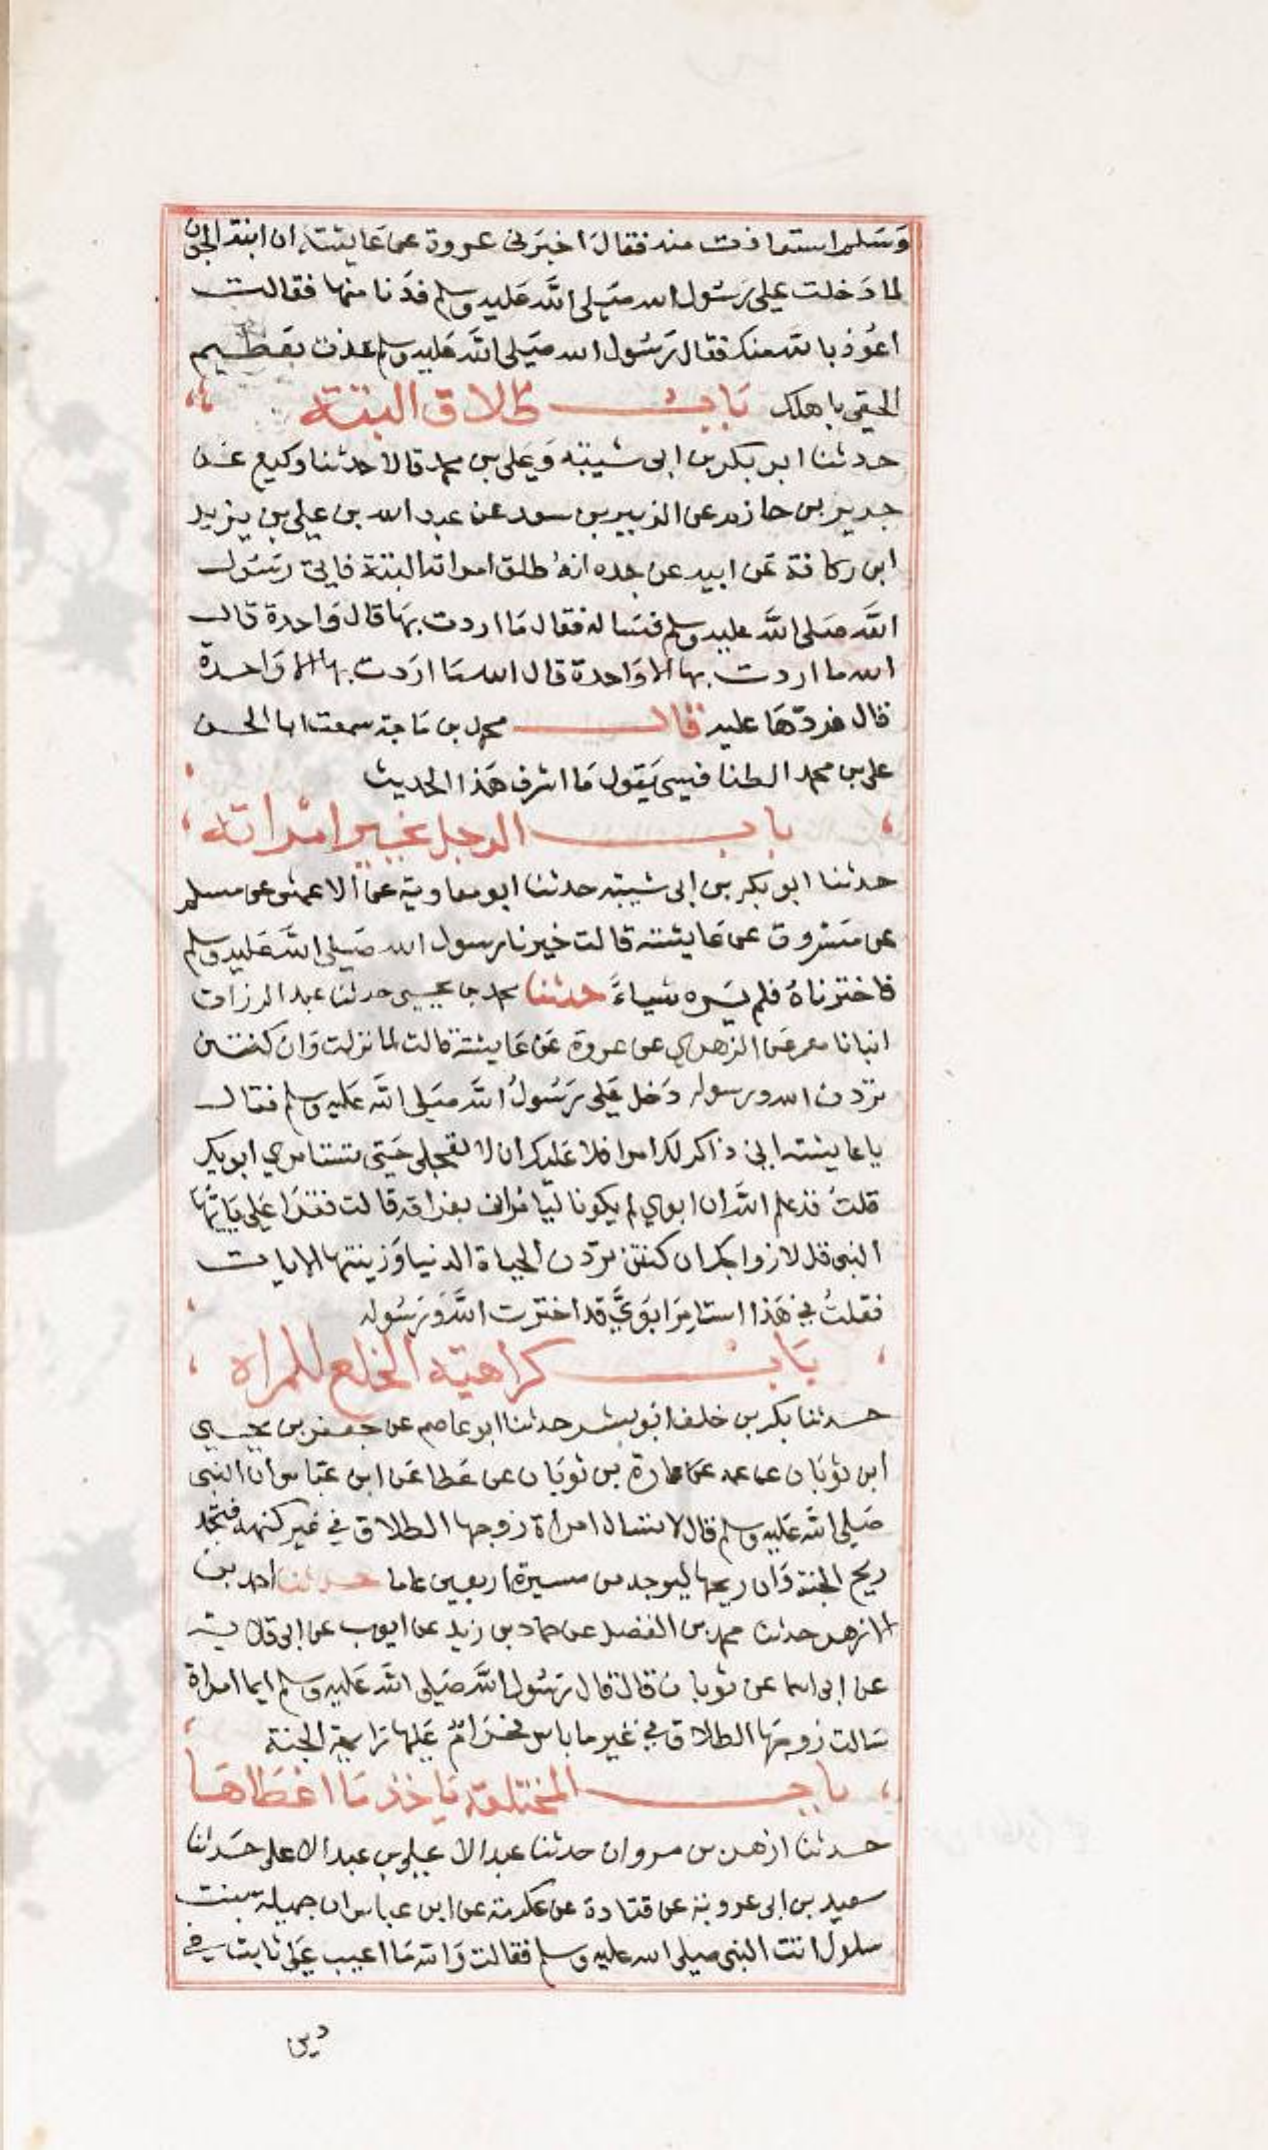 وَسَلم استعاذت منه فقالَ اخبَرَنى عروة عن عَايشة ان ابنة الجون
لما دَخلت على رَسُول الله صَلى اللَّه عَليه وسلم فدَنا منها فقالت
اعُوذ بالله منك فقال رَسُول الله صَلى الله عَليه وسلم عذت بعَظيم
الحقى باهلك بَابُ طلاق البتة
حدثنا ابو بكر بن ابى شيبة وَعَلى بن محمد قالا حدثنا وكيع عَن
جرير بن حازم عن الزبير بن سعد عن عبد الله بن على بن يزيد
ابن ركانة عَن ابيه عن جده انهُ طلق امراته البتة فاتى رسُول
اللَّه صَلى اللَّه عليه وسلم فسَاله فقال مَا اردت بهَا قال وَاحدة قال
الله ما اردت بها الا وَاحدة قال الله مَا ارَدت بها الا وَاحدة
قال فردّهَا عليه قال محمد بن مَاجة سمعت ابا الحسن
على بن محمد الطنافيسى يَقول مَا اشرف هَذا الحديث
باب الرجل يخير امراته
حدثنا ابو بكر بن ابى شيبة حدثنا ابو معاوية عن الاعمش عن مسلم
عن مَسْروق عن عَايشة قالت خيرنا رسول الله صَلى اللَّه عَليه وسلم
فاختَرناهُ فلم يَره شياءً حدثنا محمد بن يحيى حدثنا عبد الرزاق
انبانا معمر عَن الزهرى عن عروة عَن عَايشة قالت لما نزلت وَان كنتن
تردن الله ورسوله دَخل عَلى رَسُولُ اللَّه صَلى اللَّه عَليه وسلم فقال
يا عايشة انى ذاكر لك امرا فلا عَليك ان لا تعجلى حَتى تستامرى ابويك
قلتُ قد علم اللَّه ان ابوى لم يكونا ليَامرانى بفراقه قالت فقرَا عَلى يَايُّهَا
النبى قل لازواجك ان كنتن تردن الحياة الدنيا وَزينتها الايات
فقلتُ فى هَذا استامِرَ ابوَىَّ قد اخترت اللَّه وَرَسُوله
بَابُ كراهية الخلع للمراه
حدثنا بكر بن خلف ابو بشر حدثنا ابو عاصم عن جعفر بن يحيى
ابن ثوبَان عن عمه عمَارة بن ثوبَان عن عَطا عَن ابن عَباس ان النبى
صَلى اللَّه عَليه وسلم قال لا تسال امرأة زوجها الطلاق في غير كنهه فتجد
ريح الجنة وَان ريحها ليوجد من مسيرة اربعين عاما حدثنا احمد بن
الازهر حدثنا محمد بن الفضل عن حماد بن زيد عن ايوب عن ابى قلابة
عن ابى اسما عن ثوبان قال قال رَسُول اللَّه صَلى اللَّه عَليه وسلم ايما امراة
سَالت زوجَها الطلاق فى غير ما باس فحَرَامٌ عَليها رَايحة الجنة
باب المختلعة يَاخذ مَا اعْطَاهَا
حدثنا ازهر بن مروان حدثنا عبد الاعلى بن عبد الاعلى حَدثنا
سعيد بن ابى عروبة عن قتادة عن عكرمة عن ابن عباس ان جميلة بنت
سلول اتت النبى صلى الله عليه وسلم فقالت وَالله مَا اعيب عَلى ثابت فى
دين